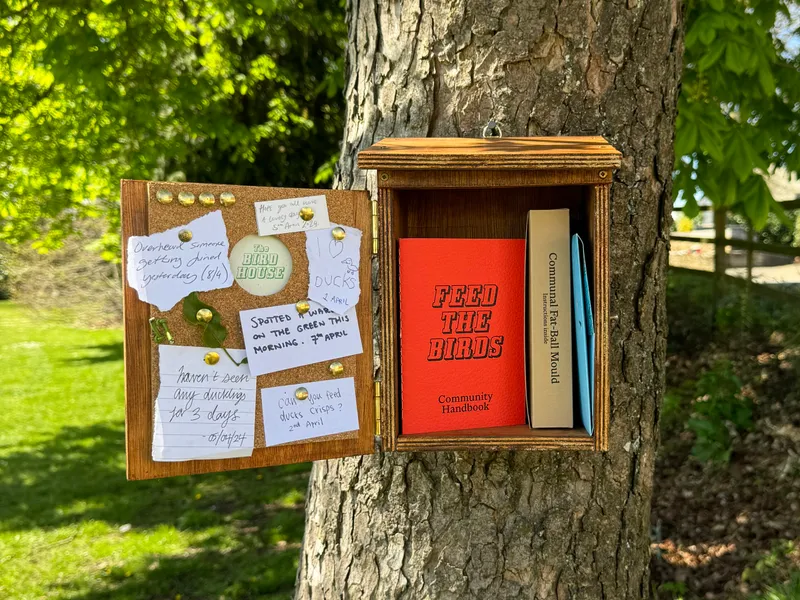 Hope you all have
a lovely day
5th April 2024
Overheard someone
getting fined
yesterday (8/4)
The
BIRD
HOUSE
10
DUCKS
2 APRIL
SPOTTED A
ON THE GREEN THIS
MORNING. 7th APRIL
haven't seen
any ducklings
for 3 days
-05/04/24
can you feed
ducks crisps?
2nd April
FEED
THE
BIRDS
Community
Handbook
Communal Fat-Ball Mould
Instructions inside